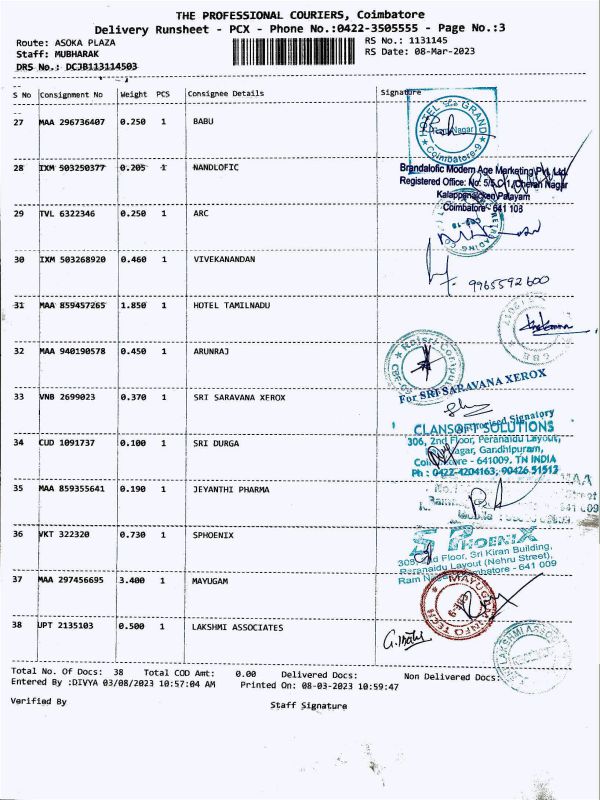 THE PROFESSIONAL COURIERS, Coimbatore
Delivery Runsheet - PCX - Phone No.:0422-3505555 - Page No.:3
Route: ASOKA PLAZA
RS No.: 1131145
Staff: MUBHARAK
RS Date: 08-Mar-2023
DRS No.: DCJB113114503
S No Consignment No Weight PCS Consignee Details Signature
27 MAA 296736407 0.250 1 BABU
HOTEL GRAND
Ram Nagar
Coimbatore-9
28 IXM 503250377 0.205 1 NANDLOFIC
Brandalofic Modern Age Marketing Pvt. Ltd.
Registered Office: No: 5/5 C-1, Cheran Nagar
Kalappanaicken Palayam
Coimbatore - 641 108
29 TVL 6322346 0.250 1 ARC
30 IXM 503268920 0.460 1 VIVEKANANDAN
9965592600
31 MAA 859457265 1.850 1 HOTEL TAMILNADU
32 MAA 940190578 0.450 1 ARUNRAJ
33 VNB 2699023 0.370 1 SRI SARAVANA XEROX
For SRI SARAVANA XEROX
Authorised Signatory
34 CUD 1091737 0.100 1 SRI DURGA
CLANSOFT SOLUTIONS
306, 2nd Floor, Peranaidu Layout,
Nagar, Gandhipuram,
Coimbatore - 641009. TN INDIA
Ph : 0422-4204163, 90426 51513
35 MAA 859355641 0.190 1 JEYANTHI PHARMA
Street
36 VKT 322320 0.730 1 SPHOENIX
SPHOENIX
2nd Floor, Sri Kiran Building,
Peranaidu Layout (Nehru Street),
Ram Nagar, Coimbatore - 641 009
37 MAA 297456695 3.400 1 MAYUGAM
MAYUGAM INFO TECH
38 UPT 2135103 0.500 1 LAKSHMI ASSOCIATES
LAKSHMI ASSOCIATES
Total No. Of Docs: 38 Total COD Amt: 0.00 Delivered Docs: Non Delivered Docs:
Entered By :DIVYA 03/08/2023 10:57:04 AM Printed On: 08-03-2023 10:59:47
Verified By
Staff Signature